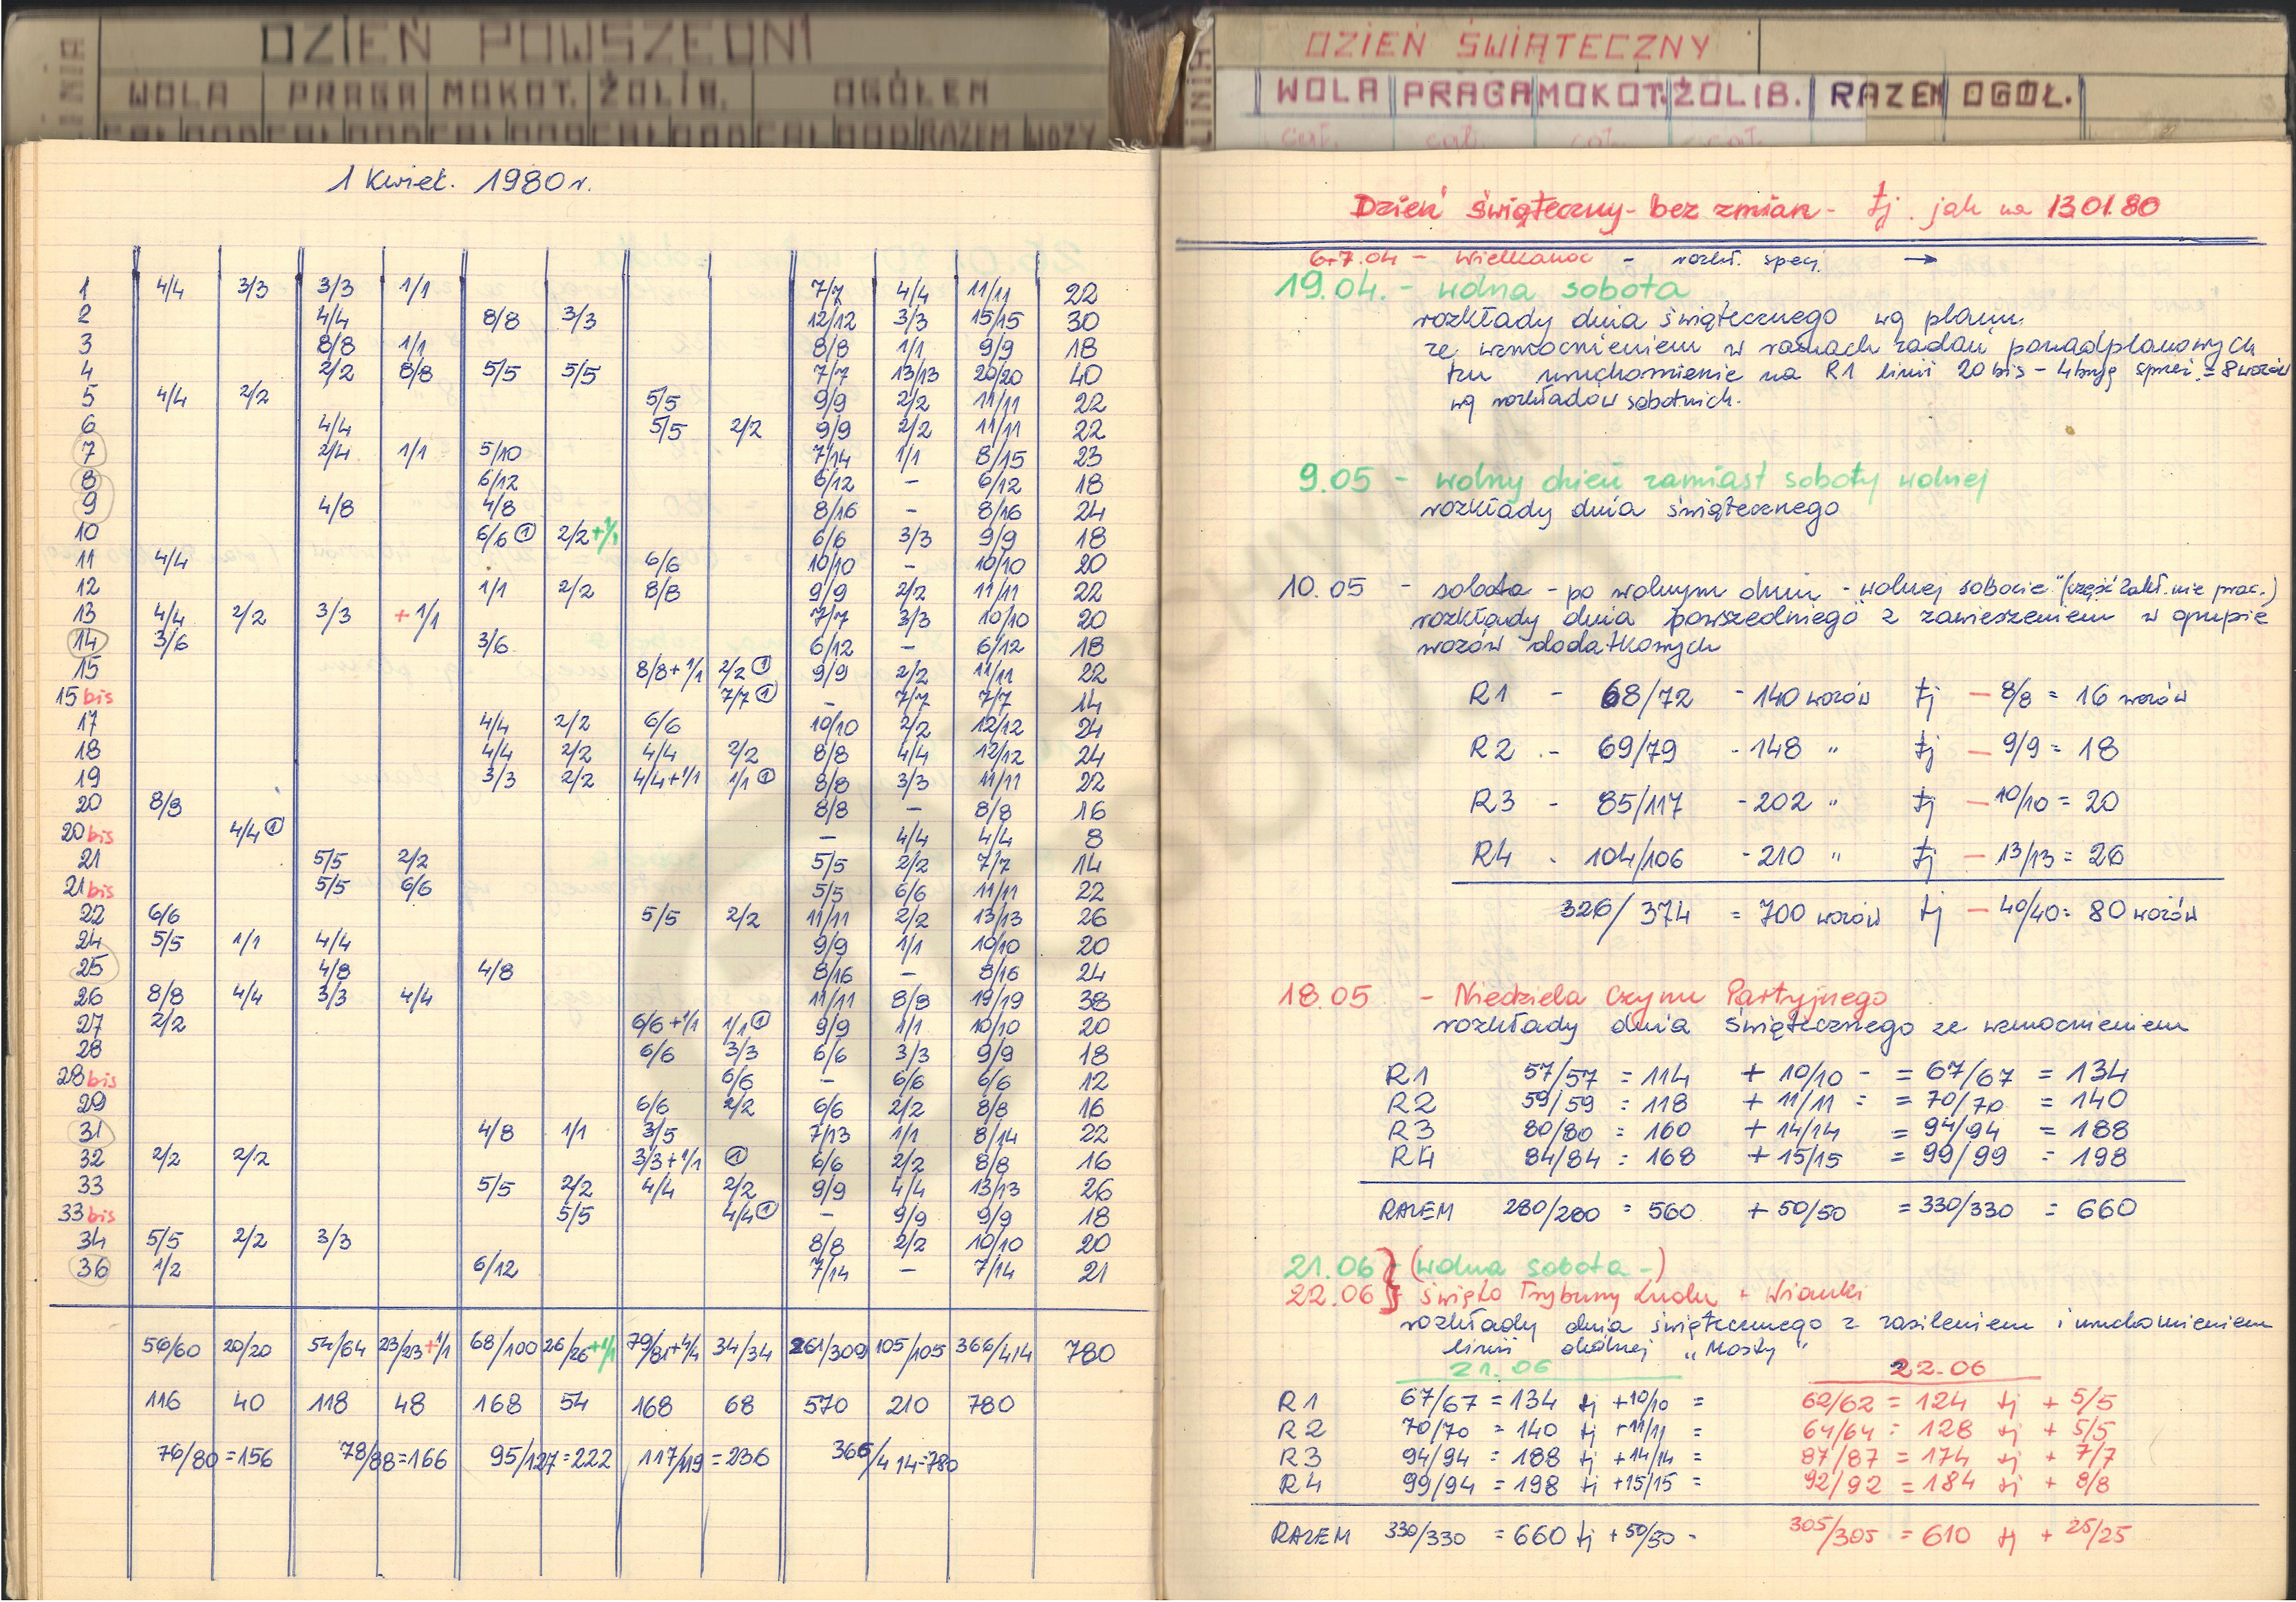 DZIEŃ POWSZEDNI
LINIA WOLA PRAGA MOKOT. ŻOLIB. OGÓŁEM
CAŁ DOD CAŁ DOD CAŁ DOD CAŁ DOD CAŁ DOD RAZEM WOZY
1 Kwiet. 1980 r.
1 4/4 3/3 3/3 1/1 7/7 4/4 11/11 22
2 4/4 8/8 3/3 12/12 3/3 15/15 30
3 8/8 1/1 8/8 1/1 9/9 18
4 2/2 8/8 5/5 5/5 7/7 13/13 20/20 40
5 4/4 2/2 5/5 9/9 2/2 11/11 22
6 4/4 5/5 2/2 9/9 2/2 11/11 22
7 2/4 1/1 5/10 7/14 1/1 8/15 23
8 6/12 6/12 – 6/12 18
9 4/8 4/8 8/16 – 8/16 24
10 6/6 ① 2/2+1/1 6/6 3/3 9/9 18
11 4/4 6/6 10/10 – 10/10 20
12 1/1 2/2 8/8 9/9 2/2 11/11 22
13 4/4 2/2 3/3 +1/1 7/7 3/3 10/10 20
14 3/6 3/6 6/12 – 6/12 18
15 8/8+1/1 2/2 ① 9/9 2/2 11/11 22
15 bis 7/7 ① – 7/7 7/7 14
17 4/4 2/2 6/6 10/10 2/2 12/12 24
18 4/4 2/2 4/4 2/2 8/8 4/4 12/12 24
19 3/3 2/2 4/4+1/1 1/1 ① 8/8 3/3 11/11 22
20 8/8 8/8 – 8/8 16
20 bis 4/4 ① – 4/4 4/4 8
21 5/5 2/2 5/5 2/2 7/7 14
21 bis 5/5 6/6 5/5 6/6 11/11 22
22 6/6 5/5 2/2 11/11 2/2 13/13 26
24 5/5 1/1 4/4 9/9 1/1 10/10 20
25 4/8 4/8 8/16 – 8/16 24
26 8/8 4/4 3/3 4/4 11/11 8/8 19/19 38
27 2/2 6/6+1/1 1/1 ① 9/9 1/1 10/10 20
28 6/6 3/3 6/6 3/3 9/9 18
28 bis 6/6 – 6/6 6/6 12
29 6/6 2/2 6/6 2/2 8/8 16
31 4/8 1/1 3/5 7/13 1/1 8/14 22
32 2/2 2/2 3/3+1/1 ① 6/6 2/2 8/8 16
33 5/5 2/2 4/4 2/2 9/9 4/4 13/13 26
33 bis 5/5 4/4 ① – 9/9 9/9 18
34 5/5 2/2 3/3 8/8 2/2 10/10 20
36 1/2 6/12 7/14 – 7/14 21
56/60 20/20 54/64 23/23+1/1 68/100 26/26+1/1 79/81+4/4 34/34 261/309 105/105 366/414 780
116 40 118 48 168 54 168 68 570 210 780
76/80 = 156 78/88 = 166 95/127 = 222 117/119 = 236 366/414 = 780
DZIEŃ ŚWIĄTECZNY
LINIA WOLA PRAGA MOKOT. ŻOLIB. RAZEM OGÓŁ.
cał. cał. cał. cał.
Dzień świąteczny - bez zmian - tj. jak na 13.01.80
6+7.04 - Wielkanoc - rozkł. specj. →
19.04. - wolna sobota
rozkłady dnia świątecznego wg planu
ze wzmocnieniem w ramach zadań ponadplanowych
tzn uruchomienie na R1 linii 20 bis - 4 bryg sprzęż. = 8 wozów
wg rozkładów sobotnich.
9.05 - wolny dzień zamiast soboty wolnej
rozkłady dnia świątecznego
10.05 - sobota - po wolnym dniu - "wolnej sobocie" (część zakł. nie prac.)
rozkłady dnia powszedniego z zawieszeniem w grupie
wozów dodatkowych
R1 - 68/72 - 140 wozów tj - 8/8 = 16 wozów
R2 - 69/79 - 148 " tj - 9/9 = 18
R3 - 85/117 - 202 " tj - 10/10 = 20
R4 - 104/106 - 210 " tj - 13/13 = 26
326/374 = 700 wozów tj - 40/40 = 80 wozów
18.05 - Niedziela Czynu Partyjnego
rozkłady dnia świątecznego ze wzmocnieniem
R1 57/57 = 114 + 10/10 - = 67/67 = 134
R2 59/59 = 118 + 11/11 = = 70/70 = 140
R3 80/80 = 160 + 14/14 = 94/94 = 188
R4 84/84 = 168 + 15/15 = 99/99 = 198
RAZEM 280/280 = 560 + 50/50 = 330/330 = 660
21.06 - (wolna sobota -)
22.06 - święto Trybuny Ludu + Wianki
rozkłady dnia świątecznego z zasileniem i uruchomieniem
linii okólnej „Mosty"
21.06 22.06
R1 67/67 = 134 tj +10/10 = 62/62 = 124 tj + 5/5
R2 70/70 = 140 tj +11/11 = 64/64 = 128 tj + 5/5
R3 94/94 = 188 tj +14/14 = 87/87 = 174 tj + 7/7
R4 99/94 = 198 tj +15/15 = 92/92 = 184 tj + 8/8
RAZEM 330/330 = 660 tj + 50/50 - 305/305 = 610 tj + 25/25